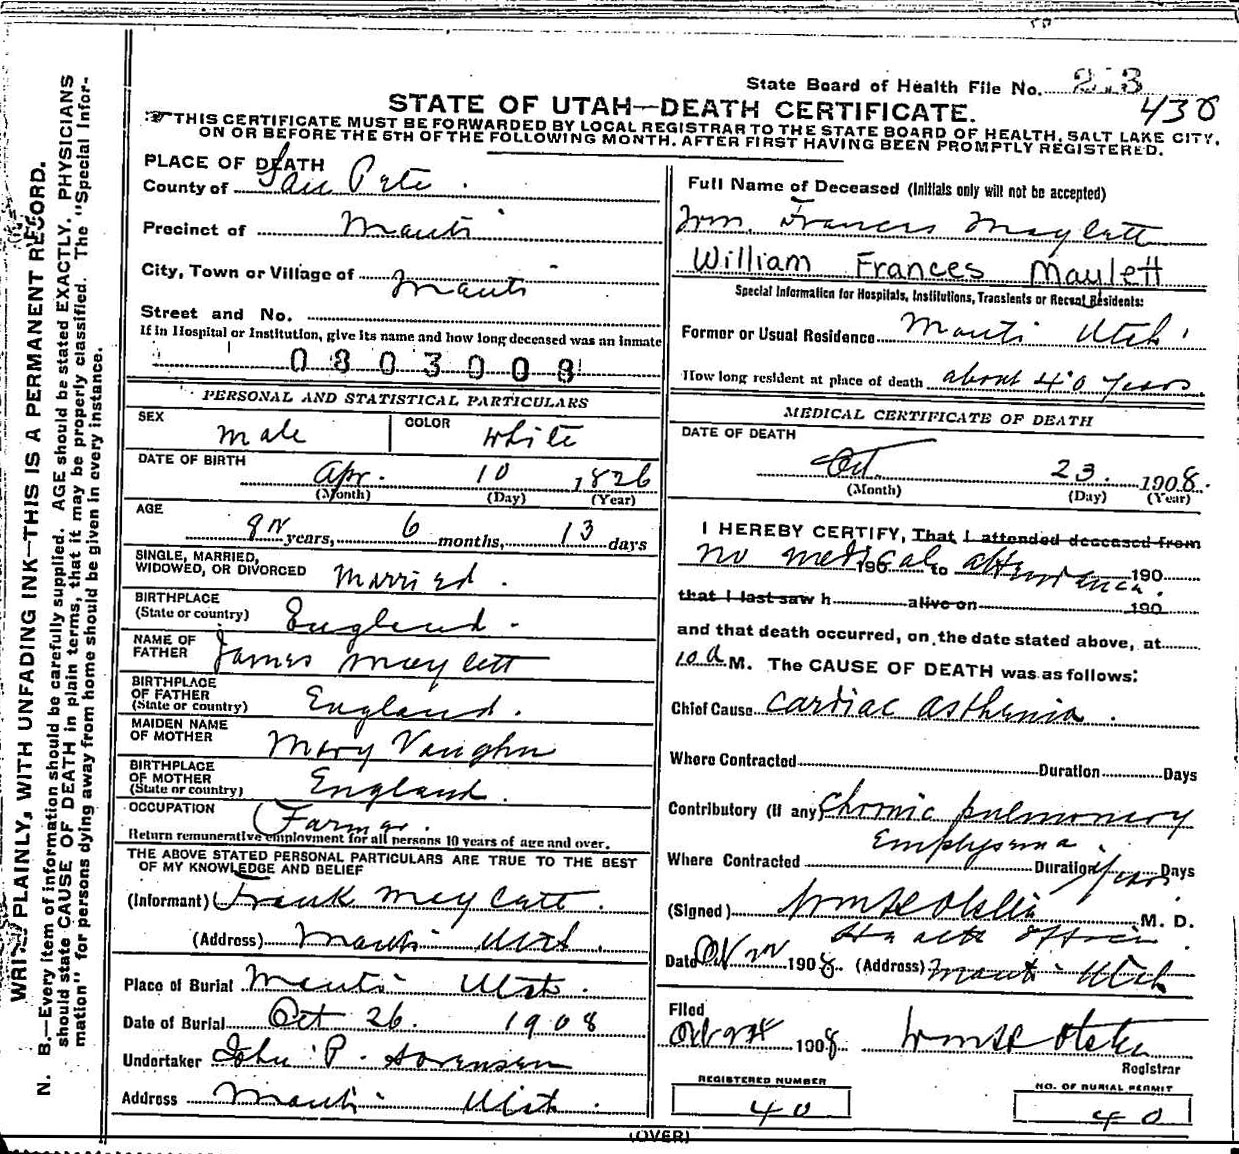 State Board of Health File No. 213
438
STATE OF UTAH—DEATH CERTIFICATE.
THIS CERTIFICATE MUST BE FORWARDED BY LOCAL REGISTRAR TO THE STATE BOARD OF HEALTH, SALT LAKE CITY,
ON OR BEFORE THE 5TH OF THE FOLLOWING MONTH, AFTER FIRST HAVING BEEN PROMPTLY REGISTERED.
WRITE PLAINLY, WITH UNFADING INK—THIS IS A PERMANENT RECORD.
N. B.—Every item of information should be carefully supplied. AGE should be stated EXACTLY. PHYSICIANS
should state CAUSE OF DEATH in plain terms, that it may be properly classified. The "Special Infor-
mation" for persons dying away from home should be given in every instance.
PLACE OF DEATH
County of San Pete.
Precinct of Manti
City, Town or Village of Manti
Street and No.
If in Hospital or Institution, give its name and how long deceased was an inmate
0803008
PERSONAL AND STATISTICAL PARTICULARS
SEX Male COLOR White
DATE OF BIRTH Apr. 10 1826
(Month) (Day) (Year)
AGE
years, 6 months, 13 days
SINGLE, MARRIED,
WIDOWED, OR DIVORCED Married.
BIRTHPLACE
(State or country) England.
NAME OF
FATHER James Maylett
BIRTHPLACE
OF FATHER
(State or country) England.
MAIDEN NAME
OF MOTHER Mary Vaughn
BIRTHPLACE
OF MOTHER
(State or country) England.
OCCUPATION Farmer.
Return remunerative employment for all persons 10 years of age and over.
THE ABOVE STATED PERSONAL PARTICULARS ARE TRUE TO THE BEST
OF MY KNOWLEDGE AND BELIEF
(Informant) Frank Maylett.
(Address) Manti Utah.
Place of Burial Manti Utah.
Date of Burial Oct 26. 1908
Undertaker John P. Sorensen
Address Manti Utah.
Full Name of Deceased (Initials only will not be accepted)
Wm. Francis Maylett
William Frances Maylett
Special Information for Hospitals, Institutions, Transients or Recent Residents:
Former or Usual Residence Manti Utah
How long resident at place of death about 40 years
MEDICAL CERTIFICATE OF DEATH
DATE OF DEATH
Oct 23. 1908.
(Month) (Day) (Year)
I HEREBY CERTIFY, That I attended deceased from
no medical attendance.
190 to 190
that I last saw h alive on 190
and that death occurred, on the date stated above, at
10 a M. The CAUSE OF DEATH was as follows:
Chief Cause Cardiac asthenia.
Where Contracted Duration Days
Contributory (If any) Chronic pulmonary
Emphysema.
Where Contracted Duration years Days
(Signed) M. D.
Health Officer
Date 1908. (Address) Manti Utah
Filed
1908.
Registrar
REGISTERED NUMBER
40
NO. OF BURIAL PERMIT
40
(OVER)